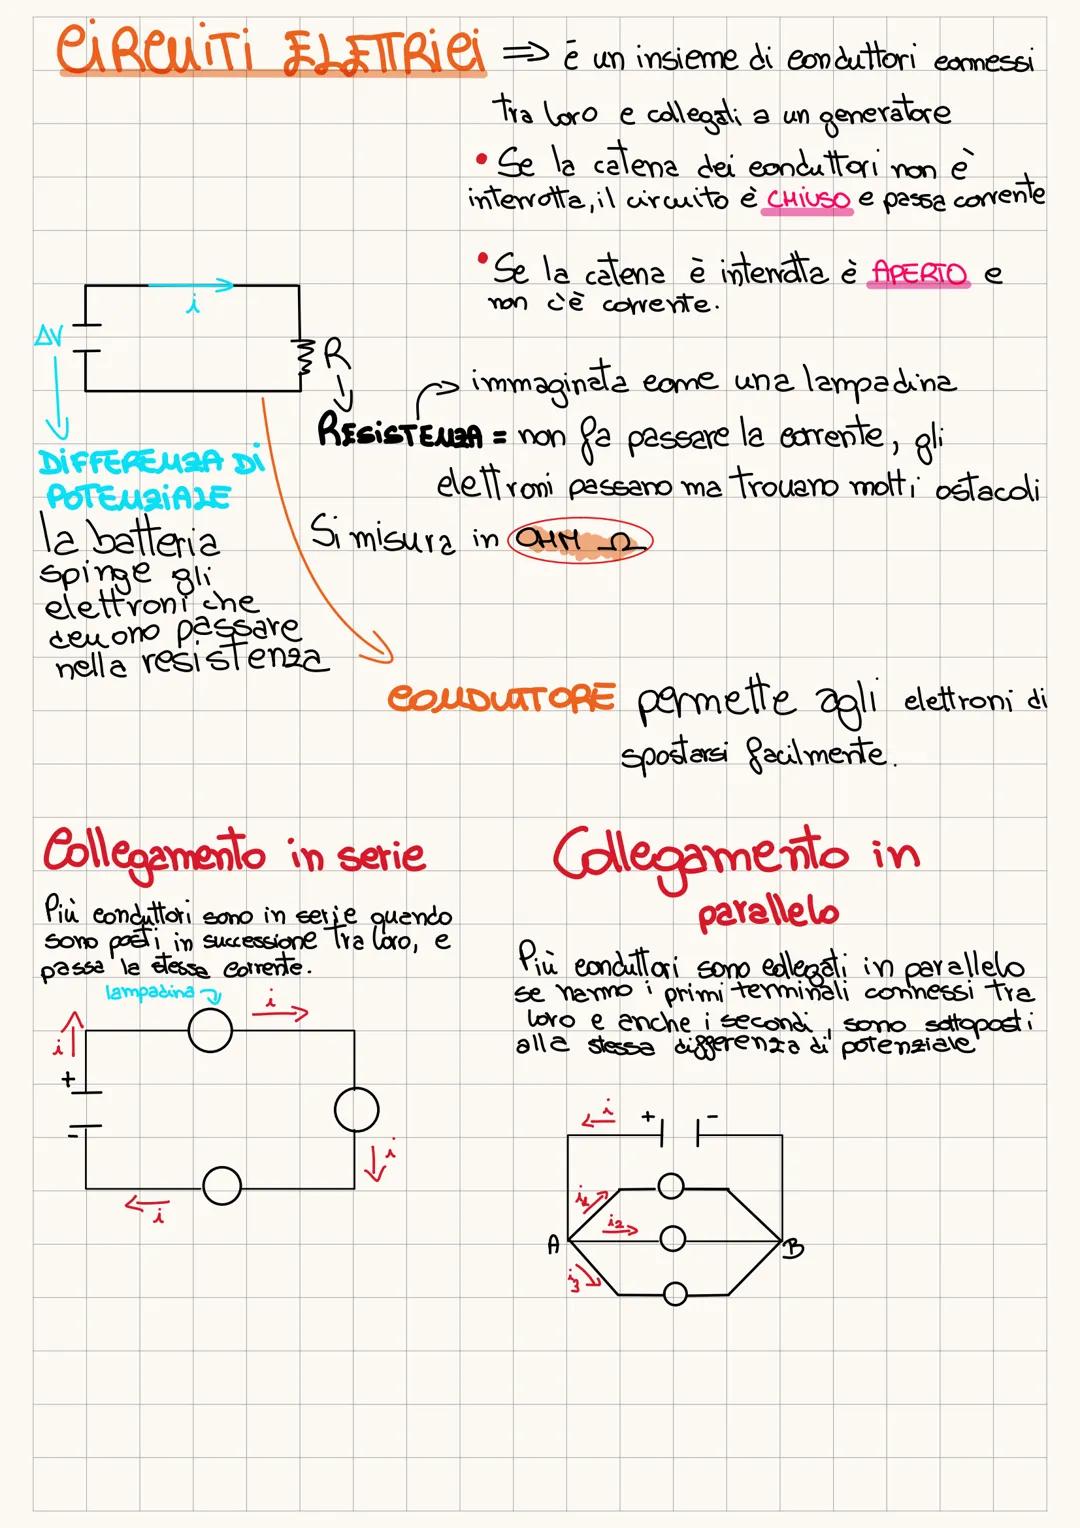 CIRCUITI ELETTRICI ⇒ è un insieme di conduttori connessi
tra loro e collegati a un generatore
• Se la catena dei conduttori non è
interrotta, il circuito è CHIUSO e passa corrente
• Se la catena è interrotta è APERTO e
non c'è corrente.
i
ΔV
R
immaginata come una lampadina
RESISTENZA = non fa passare la corrente, gli
elettroni passano ma trovano molti ostacoli
Si misura in OHM Ω
DIFFERENZA DI
POTENZIALE
la batteria
spinge gli
elettroni che
devono passare
nella resistenza
CONDUTTORE permette agli elettroni di
spostarsi facilmente.
Collegamento in serie
Più conduttori sono in serie quando
sono posti in successione tra loro, e
passa la stessa corrente.
lampadina
i
i
+
-
i
i
Collegamento in
parallelo
Più conduttori sono collegati in parallelo
se hanno i primi terminali connessi tra
loro e anche i secondi, sono sottoposti
alla stessa differenza di potenziale
i + -
i1
i2
A B
i3